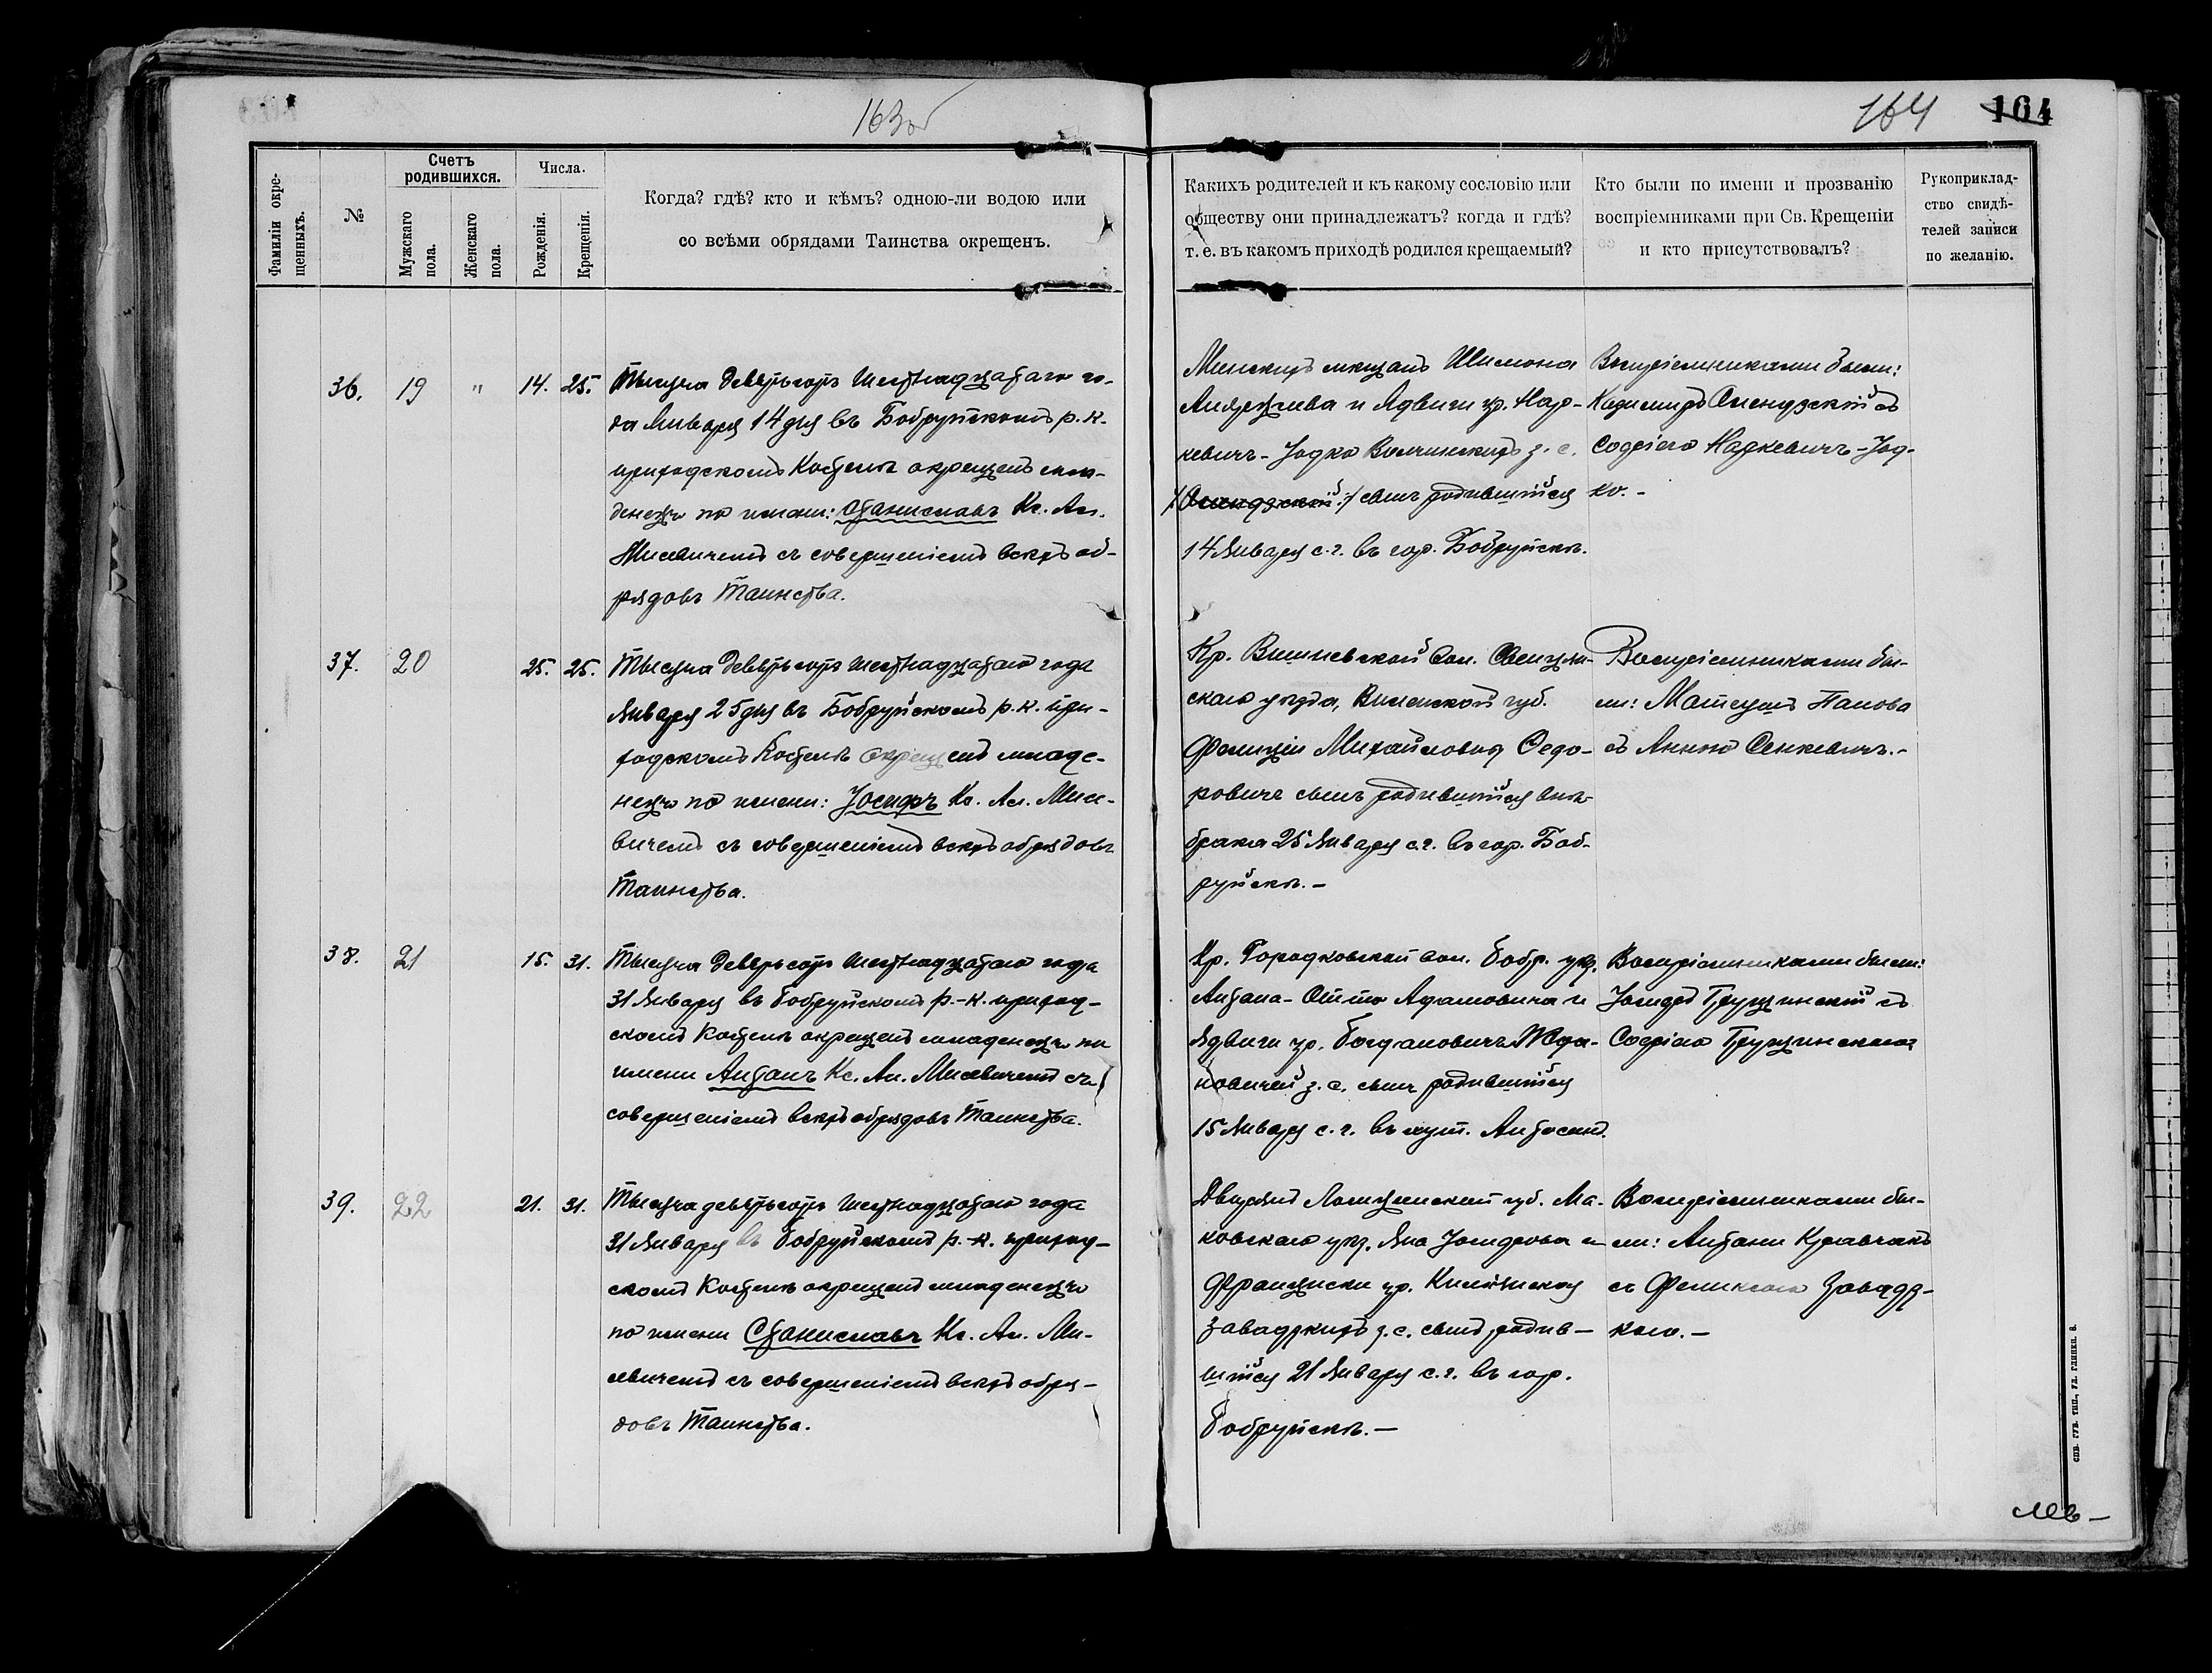 163об
164 164
Фамиліи окре-
щенныхъ.
№
Счетъ
родившихся.
Мужскаго
пола.
Женскаго
пола.
Числа.
Рожденія.
Крещенія.
Когда? гдѣ? кто и кѣмъ? одною-ли водою или
со всѣми обрядами Таинства окрещенъ.
Какихъ родителей и къ какому сословію или
обществу они принадлежатъ? когда и гдѣ?
т. е. въ какомъ приходѣ родился крещаемый?
Кто были по имени и прозванію
воспріемниками при Св. Крещеніи
и кто присутствовалъ?
Рукоприклад-
ство свидѣ-
телей записи
по желанію.
36. 19 " 14. 25.
Тысяча девятьсотъ шестнадцатаго го-
да Января 14 дня въ Бобруйскомъ р. к.
приходскомъ Костелѣ окрещенъ мла-
денецъ по имени: Станиславъ Кс. Ал.
Мисевичемъ съ совершеніемъ всѣхъ об-
рядовъ Таинства.
Минскихъ мѣщанъ Шимона
и Ядвиги ур. Нар-
кевичъ-Іодко з. с.
сынъ родившійся
14 Января с. г. въ гор. Бобруйскѣ.
Воспріемниками были:
Казимиръ съ
Софіею Наркевичъ-Іод-
ко. -
37. 20 25. 25.
Тысяча девятьсотъ шестнадцатаго года
Января 25 дня въ Бобруйскомъ р. к. при-
ходскомъ Костелѣ окрещенъ младе-
нецъ по имени: Іосифъ Кс. Ал. Мисе-
вичемъ съ совершеніемъ всѣхъ обрядовъ
Таинства.
Кр. Вишневской вол. Свенцян-
скаго уѣзда, Виленской губ.
Фелиціи Михайловны Федо-
ровичъ сынъ родившійся внѣ
брака 25 Января с. г. въ гор. Боб-
руйскѣ. -
Воспріемниками бы-
ли: Матеушъ Панова
съ Анною Сенкевичъ. -
38. 21 15. 31.
Тысяча девятьсотъ шестнадцатаго года
31 Января въ Бобруйскомъ р.-к. приход-
скомъ Костелѣ окрещенъ младенецъ по
имени Антонъ Кс. Ал. Мисевичемъ съ
совершеніемъ всѣхъ обрядовъ Таинства.
Кр. Городковской вол. Бобр. уѣз.
Антона- Адамовича и
Ядвиги ур. Богдановичъ Жда-
новичей з. с. сынъ родившійся
15 Января с. г. въ хут. Антосинъ.
Воспріемниками были:
Іосифъ Грущинскій съ
Софіею Грущинскою
39. 22 21. 31.
Тысяча девятьсотъ шестнадцатаго года
31 Января въ Бобруйскомъ р.-к. приход-
скомъ Костелѣ окрещенъ младенецъ
по имени Станиславъ Кс. Ал. Ми-
севичемъ съ совершеніемъ всѣхъ обря-
довъ Таинства.
Дворянъ Ломжинской губ. Ма-
ковскаго уѣз. Яна Іосифова и
Франциски ур.
Завадзкихъ з. с. сынъ родив-
шійся 21 Января с. г. въ гор.
Бобруйскѣ. -
Воспріемниками бы-
ли: Антони Кравчакъ
съ Феликсою Завадз-
кою. -
СПБ. ГУБ. ТИП., УЛ. ГЛИНКИ. 8.